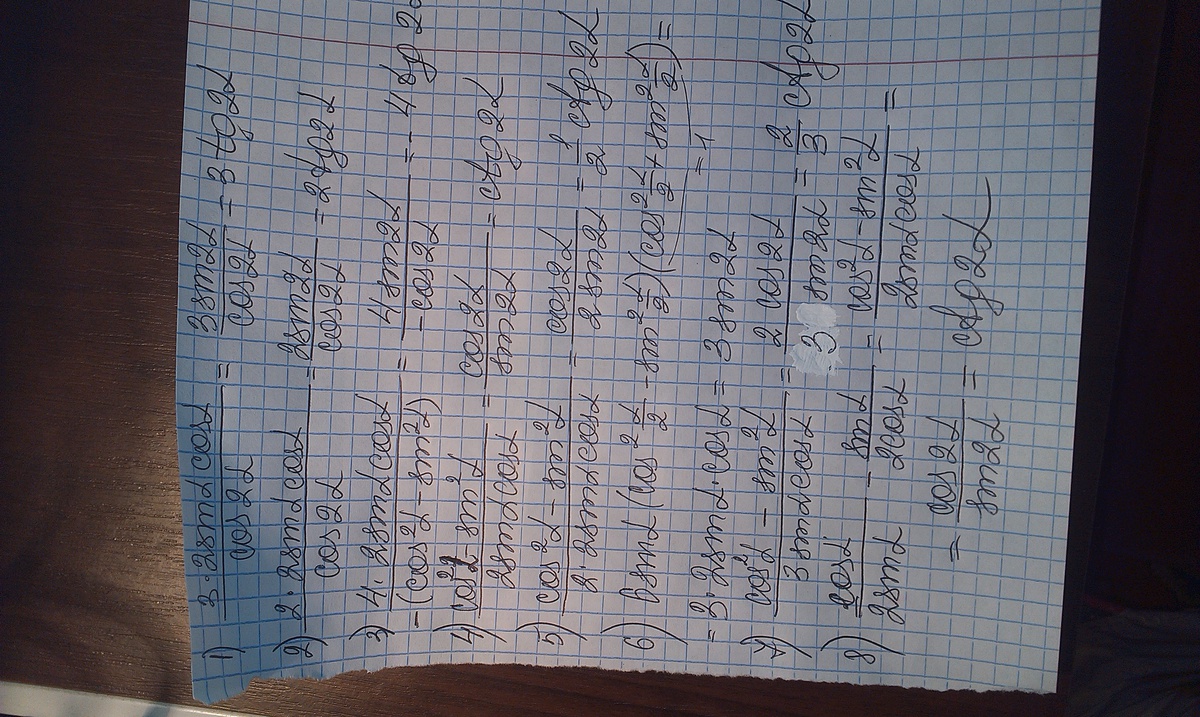 1) (3·2sinα cosα)/(cos2α) = (3sin2α)/(cos2α) = 3 tg2α
2) (2·2sinα cosα)/(cos2α) = (2sin2α)/(cos2α) = 2tg2α
3) (4·2sinα cosα)/(-(cos²α - sin²α)) = (4sin2α)/(-cos2α) = -4 tg2α
4) (cos²α - sin²α)/(2sinα cosα) = (cos2α)/(sin2α) = ctg2α
5) (cos²α - sin²α)/(2·2sinα cosα) = (cos2α)/(2sin2α) = 1/2 ctg2α
6) 6sinα (cos² α/2 - sin² α/2)(cos² α/2 + sin² α/2) =
= 1
= 3·2sinα·cosα = 3sin2α
7) (cos²α - sin²α)/(3sinα cosα) = (2cos2α)/(3 sin2α) = 2/3 ctg2α
8) cosα/(2sinα) - sinα/(2cosα) = (cos²α - sin²α)/(2sinα cosα) =
= (cos2α)/(sin2α) = ctg2α